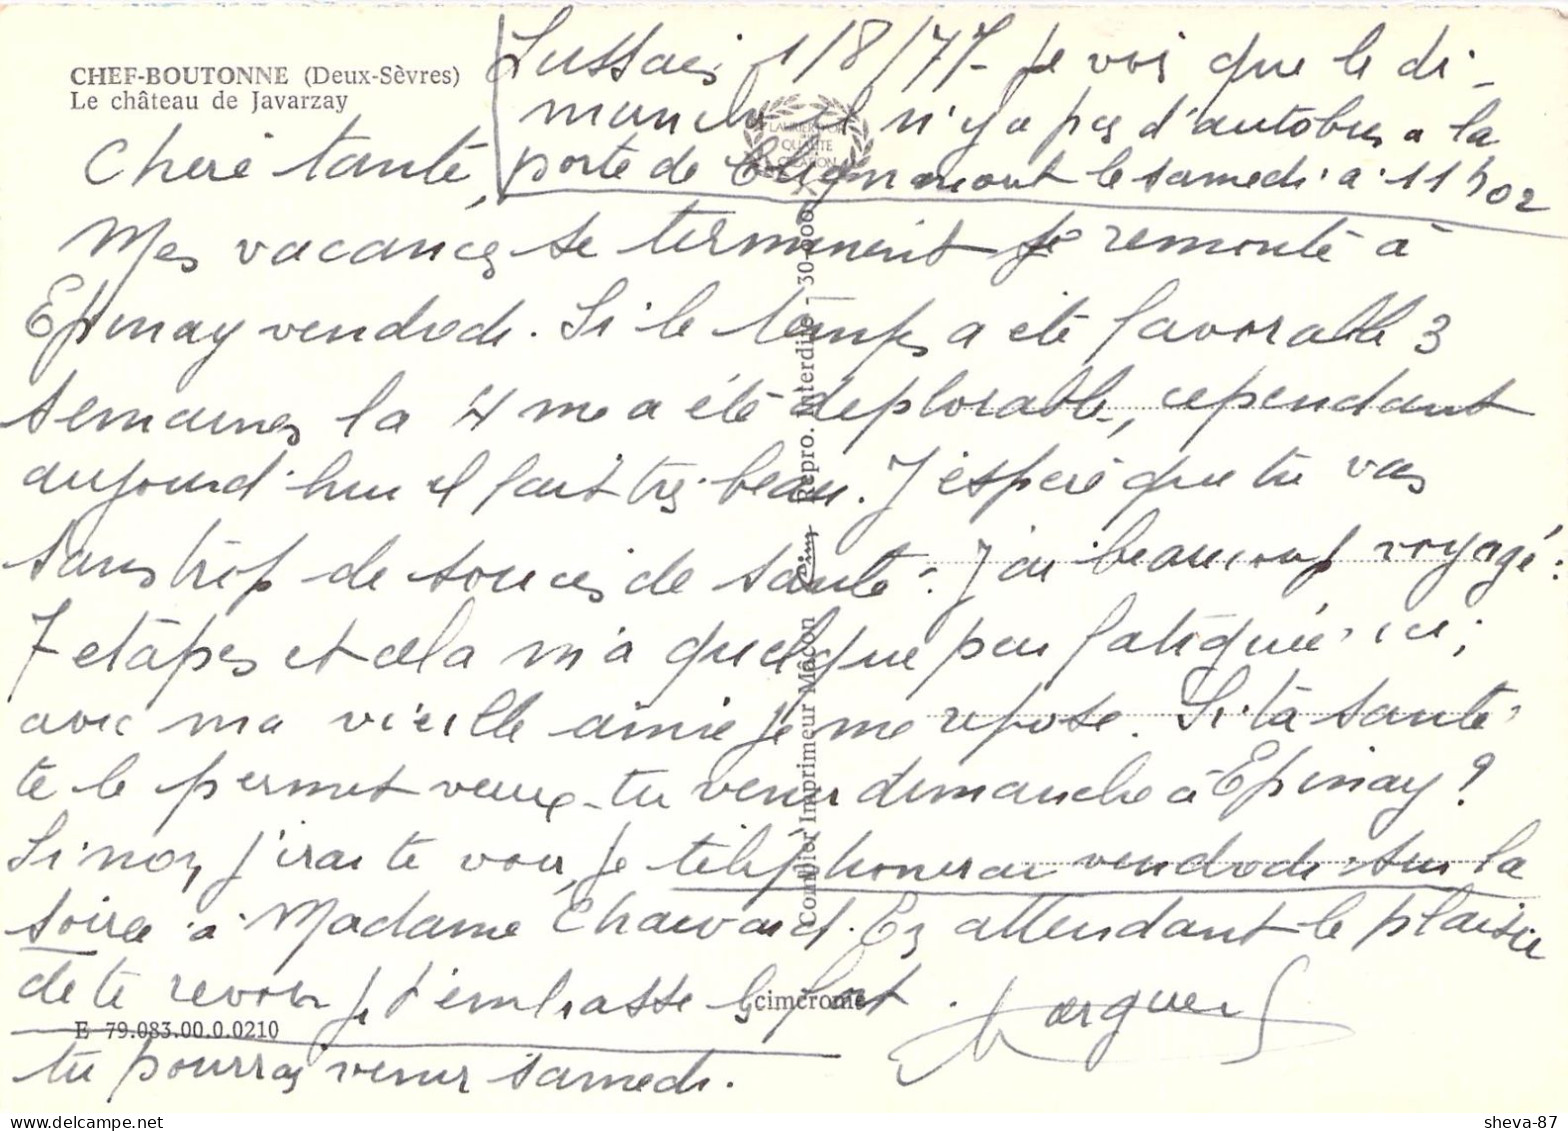 CHEF-BOUTONNE (Deux-Sèvres)
Le château de Javarzay
1/8/77 - je vois que le di-
manche il n'y a pas d'autobus a la
porte de le samedi a 11h02
Chere tante,
Mes vacances se terminent je remonte à
Epinay vendredi. Si le temps a été favorable 3
semaines la 4 me a été déplorable, cependant
aujourd'hui il fait très beau. J'espere que tu vas
sans trop de soucis de santé. J'ai beaucoup voyagé :
7 étapes et cela m'a quelque peu fatiguée ici ;
avec ma vieille amie je me repose. Si ta santé
te le permet veux-tu venir dimanche à Epinay ?
Sinon j'irai te voir, je téléphonerai vendredi sur la
soirée à Madame. En attendant le plaisir
de te revoir je t'embrasse bien fort.
tu pourras venir samedi.
LAURIER D'OR
DE LA
QUALITÉ
CRÉATION
Combier Imprimeur Mâcon Cim Repro. Interdite - 30-400
cimcrome
E 79.083.00.0.0210
sheva-87